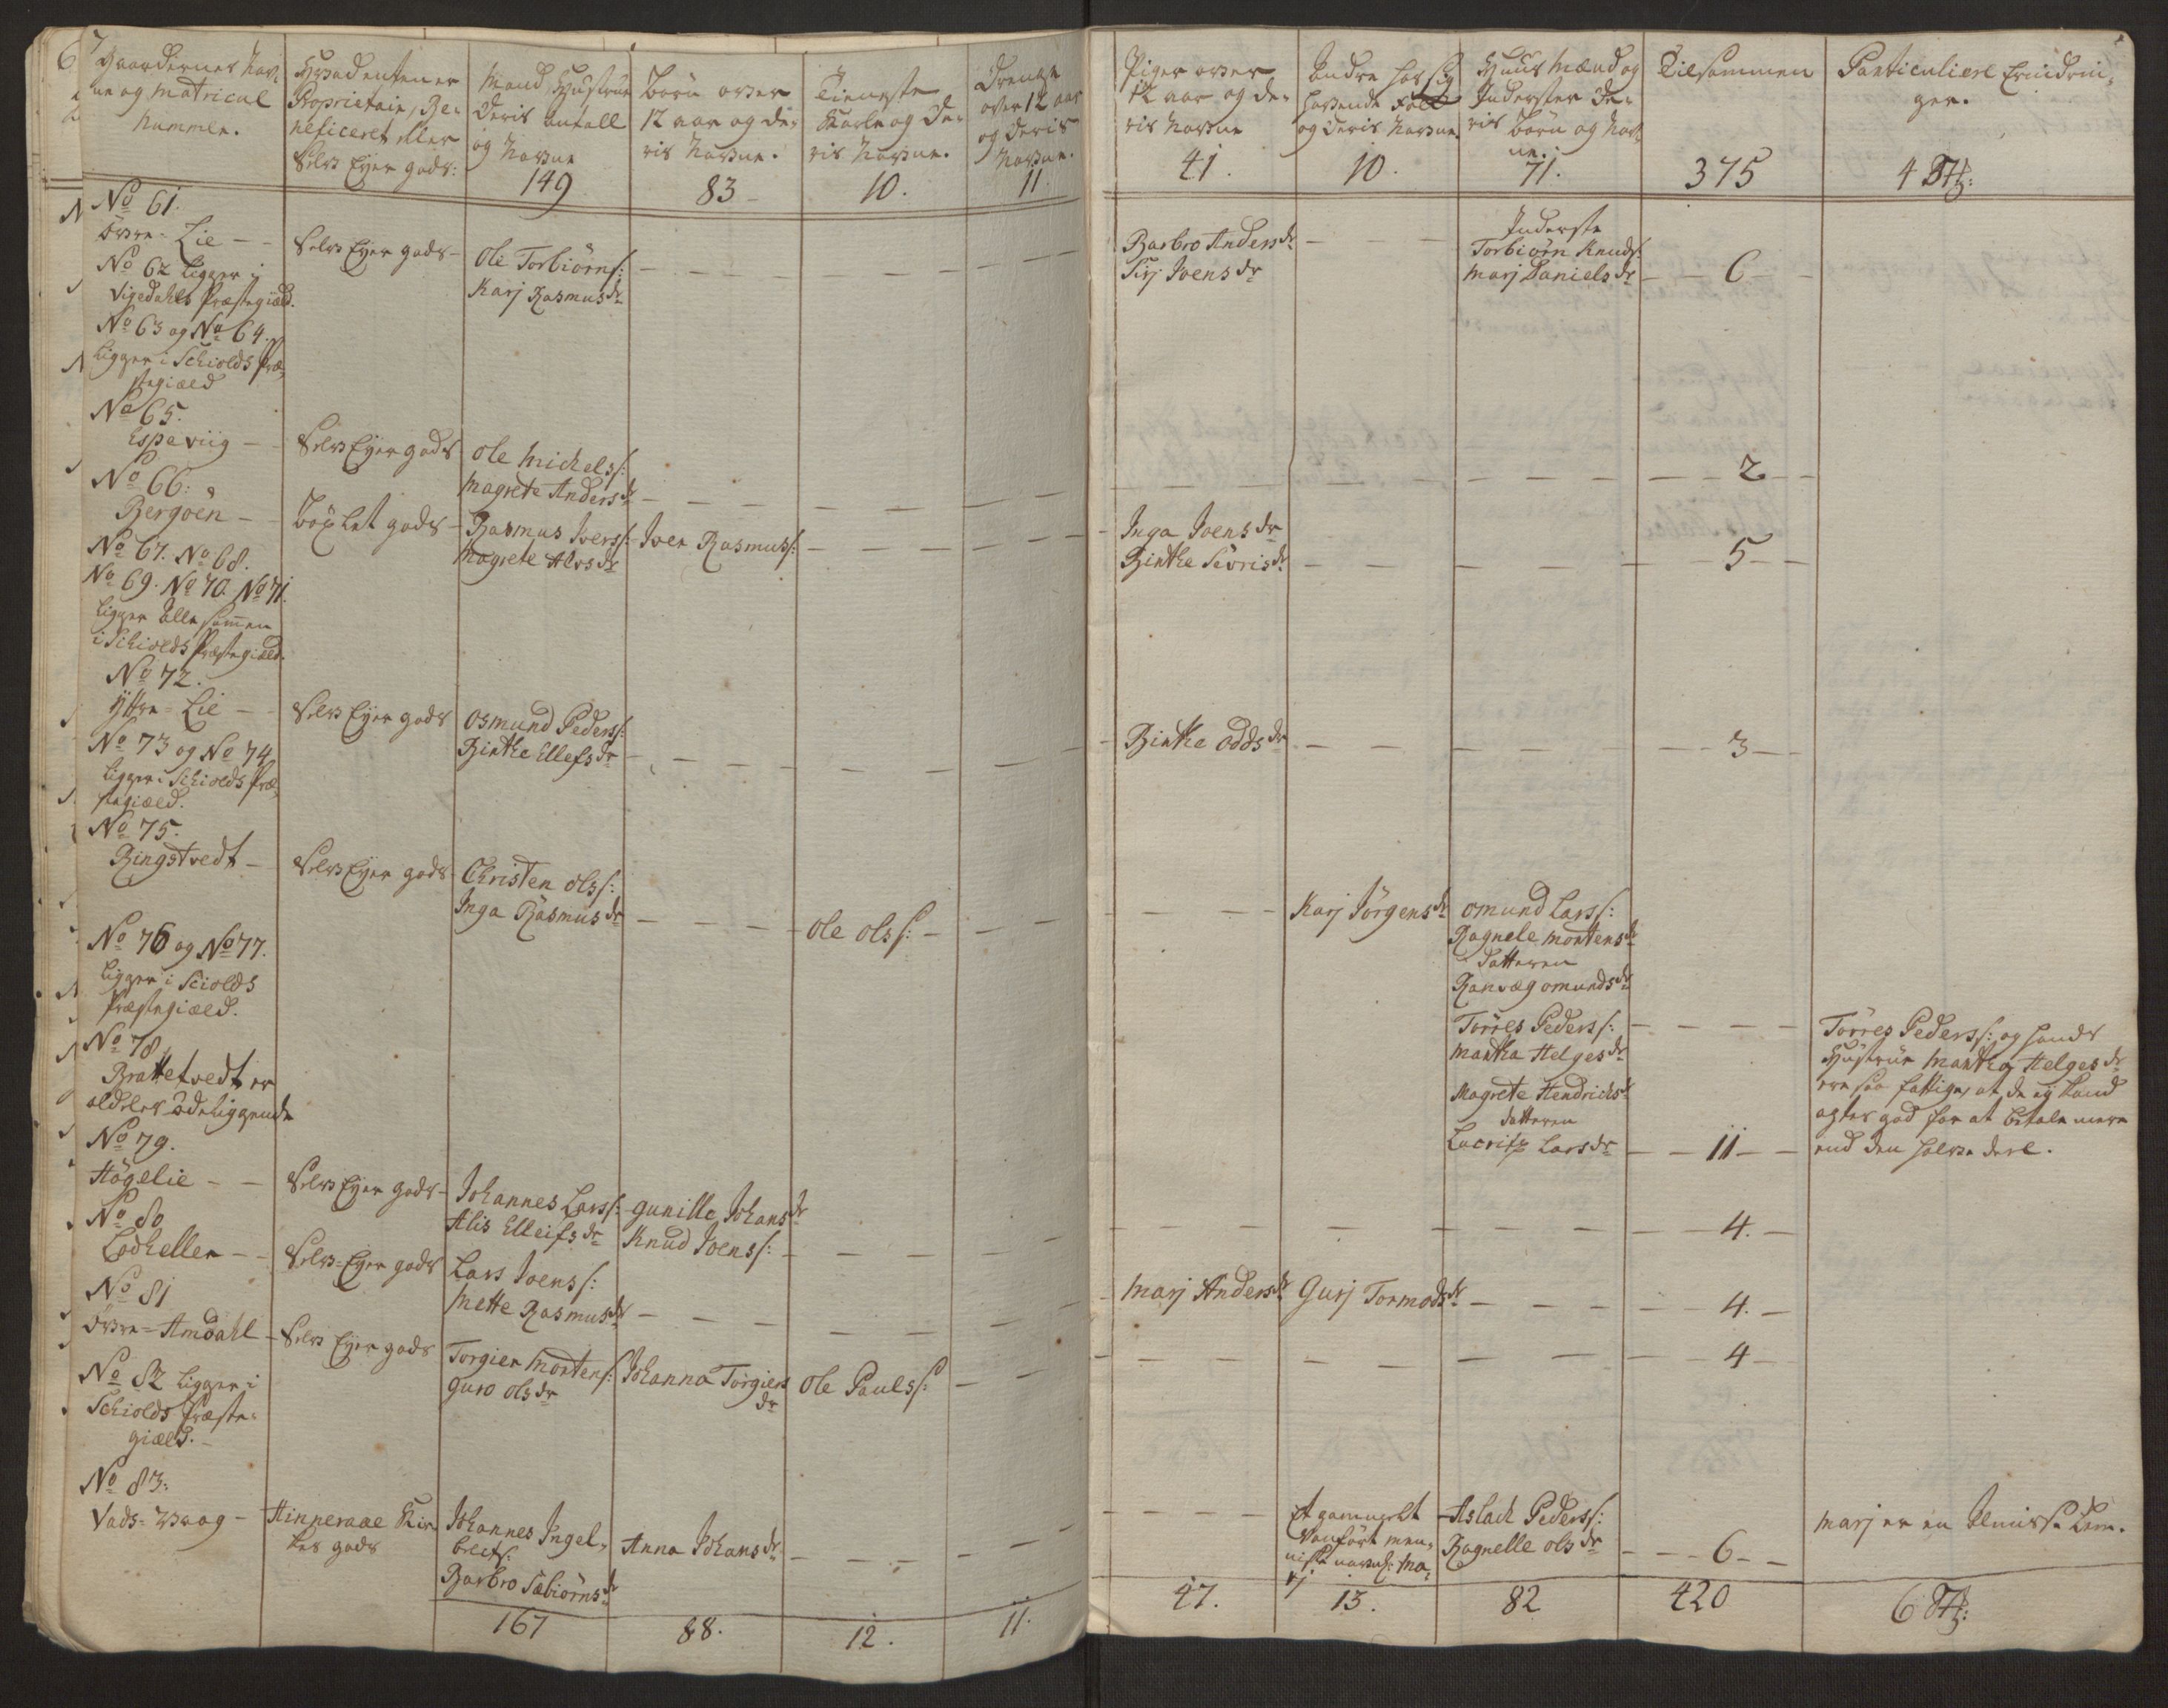 7
Gaardernes Nav-
ne og Matricul
Nummer.
Hvad enten er
Proprietair, Be-
neficeret eller
Selv Ejer gods:
Mand, Hustrue
Deris antall
og Navne
149
Børn over
12 aar og de-
ris Navne.
83
Tieneste
Karle og De-
ris Navne.
10.
Drenge
over 12 aar
og Deris
Navne.
11.
Piger over
12 aar og de-
ris Navne
41.
Andre hos sig
havende Folk
og Deris Navne.
10.
Huus Mænd og
Inderster De-
ris Børn og Nav-
ne.
71.
Tilsammen
375
Particuliere Erindrin-
ger.
4 St:
No 61.
Øvre-Lie - -
Selv Ejer gods -
Ole Torbiørns:
Karj Rasmusdr
Barbro Andersdr
Sirj Joensdr
Inderste
Torbiørn Knuds:
Marj Danielsdr
6
No 62 Ligger i
Vigedahls Præstegiæld.
No 63 og No 64.
Ligger i Schiolds Præ-
stegiæld
No 65.
Espeviig -
Selv Ejer gods
Ole Michels s:
Magrete Andersdr
2
No 66.
Bergøen - -
Bøxlet gods -
Rasmus Ivers s:
Magrete Alvsdr
Iver Rasmus s:
Inga Joensdr
Birthe Siørisdr
5
No 67. No 68.
No 69. No 70. No 71.
Ligger Alle sammen
i Schiolds Præstegiæld.
No 72.
Yttre-Lie -
Selv Ejer gods
Osmund Peders s:
Birthe Ellefsdr
Birthe Oddsdr
3
No 73 og No 74
Ligger i Schiolds Præ-
stegiæld.
No 75.
Ringstvedt -
Selv Ejer gods
Christen Ols s:
Inga Rasmusdr
Ole Ols s: -
Karj Jørgensdr
Omund Lars s:
Ragnele Mortensdr
Datteren
Ranvæg Omundsdr
Tørres Peders s:
Martha Helgesdr
Magrete Hendrichsdr
Datteren
Lucritz Larsdr
11
Tørres Peders s: og hands
Hustrue Martha Helgesdr
ere saa fattige, at de ej kand
agtes god for at betale mere
end den halve deel.
No 76 og No 77.
Ligger i Sciolds
Præstegiæld.
No 78.
Brattetvedt er
aldeles Ødeliggende
No 79.
Høgelie - -
Selv Ejer gods -
Johannes Lars s:
Alis Elleifsdr
Gunille Johansdr
Knud Joens s:
4.
No 80
Lodheller - -
Selv-Ejer gods
Lars Joens s:
Mette Rasmusdr
Marj Andersdr
Gurj Tormodsdr
4.
No 81
Øvre-Amdahl -
Selv Ejer gods
Torgier Mortens:
Guro Olsdr
Johanna Torgiers
dr
Ole Pauls s:
4
No 82 Ligger i
Schiolds Præste-
giæld.
No 83:
Vads-Vaag -
Hinneraae Kir-
kes gods
Johannes Ingel-
brects:
Barbro Sæbiørnsdr
Anna Johansdr
Et gammelt
Vanført men-
niske navnl: Ma-
rj
Aslach Peders s:
Ragnelle Olsdr
6
Marj er en Almisse Lem.
167
88.
12.
11.
47.
13.
82
420
6 St: